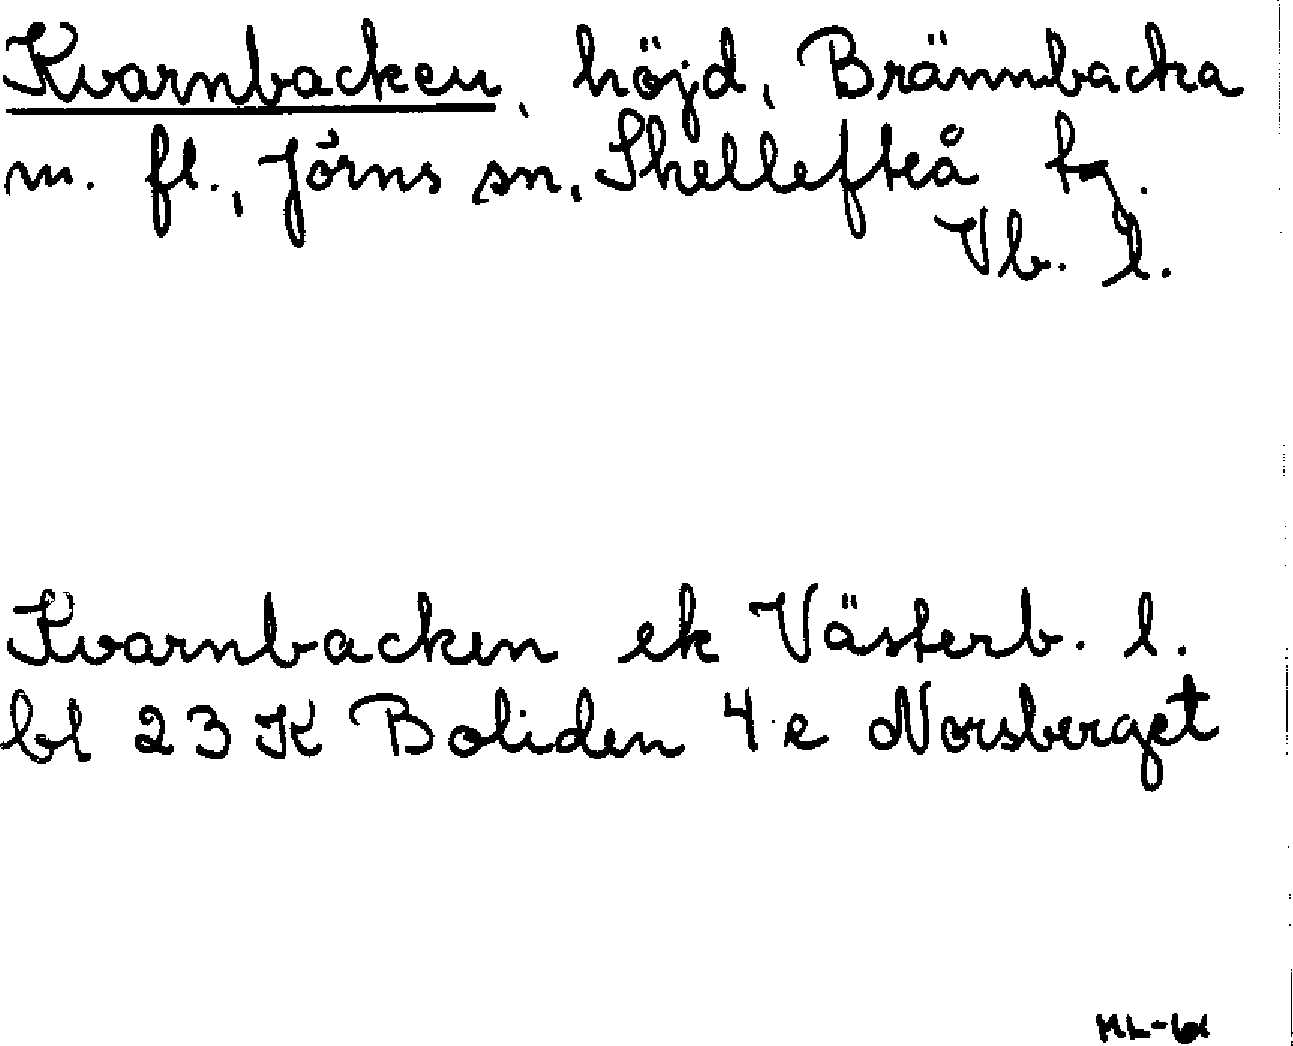 Kvarnbacken, höjd, Brännbacka
m. fl., Jörns sn, Skellefteå tg.
Vb. l.
Kvarnbacken ek Västerb. l.
bl 23 K Boliden 4 e Norsberget
ML-61